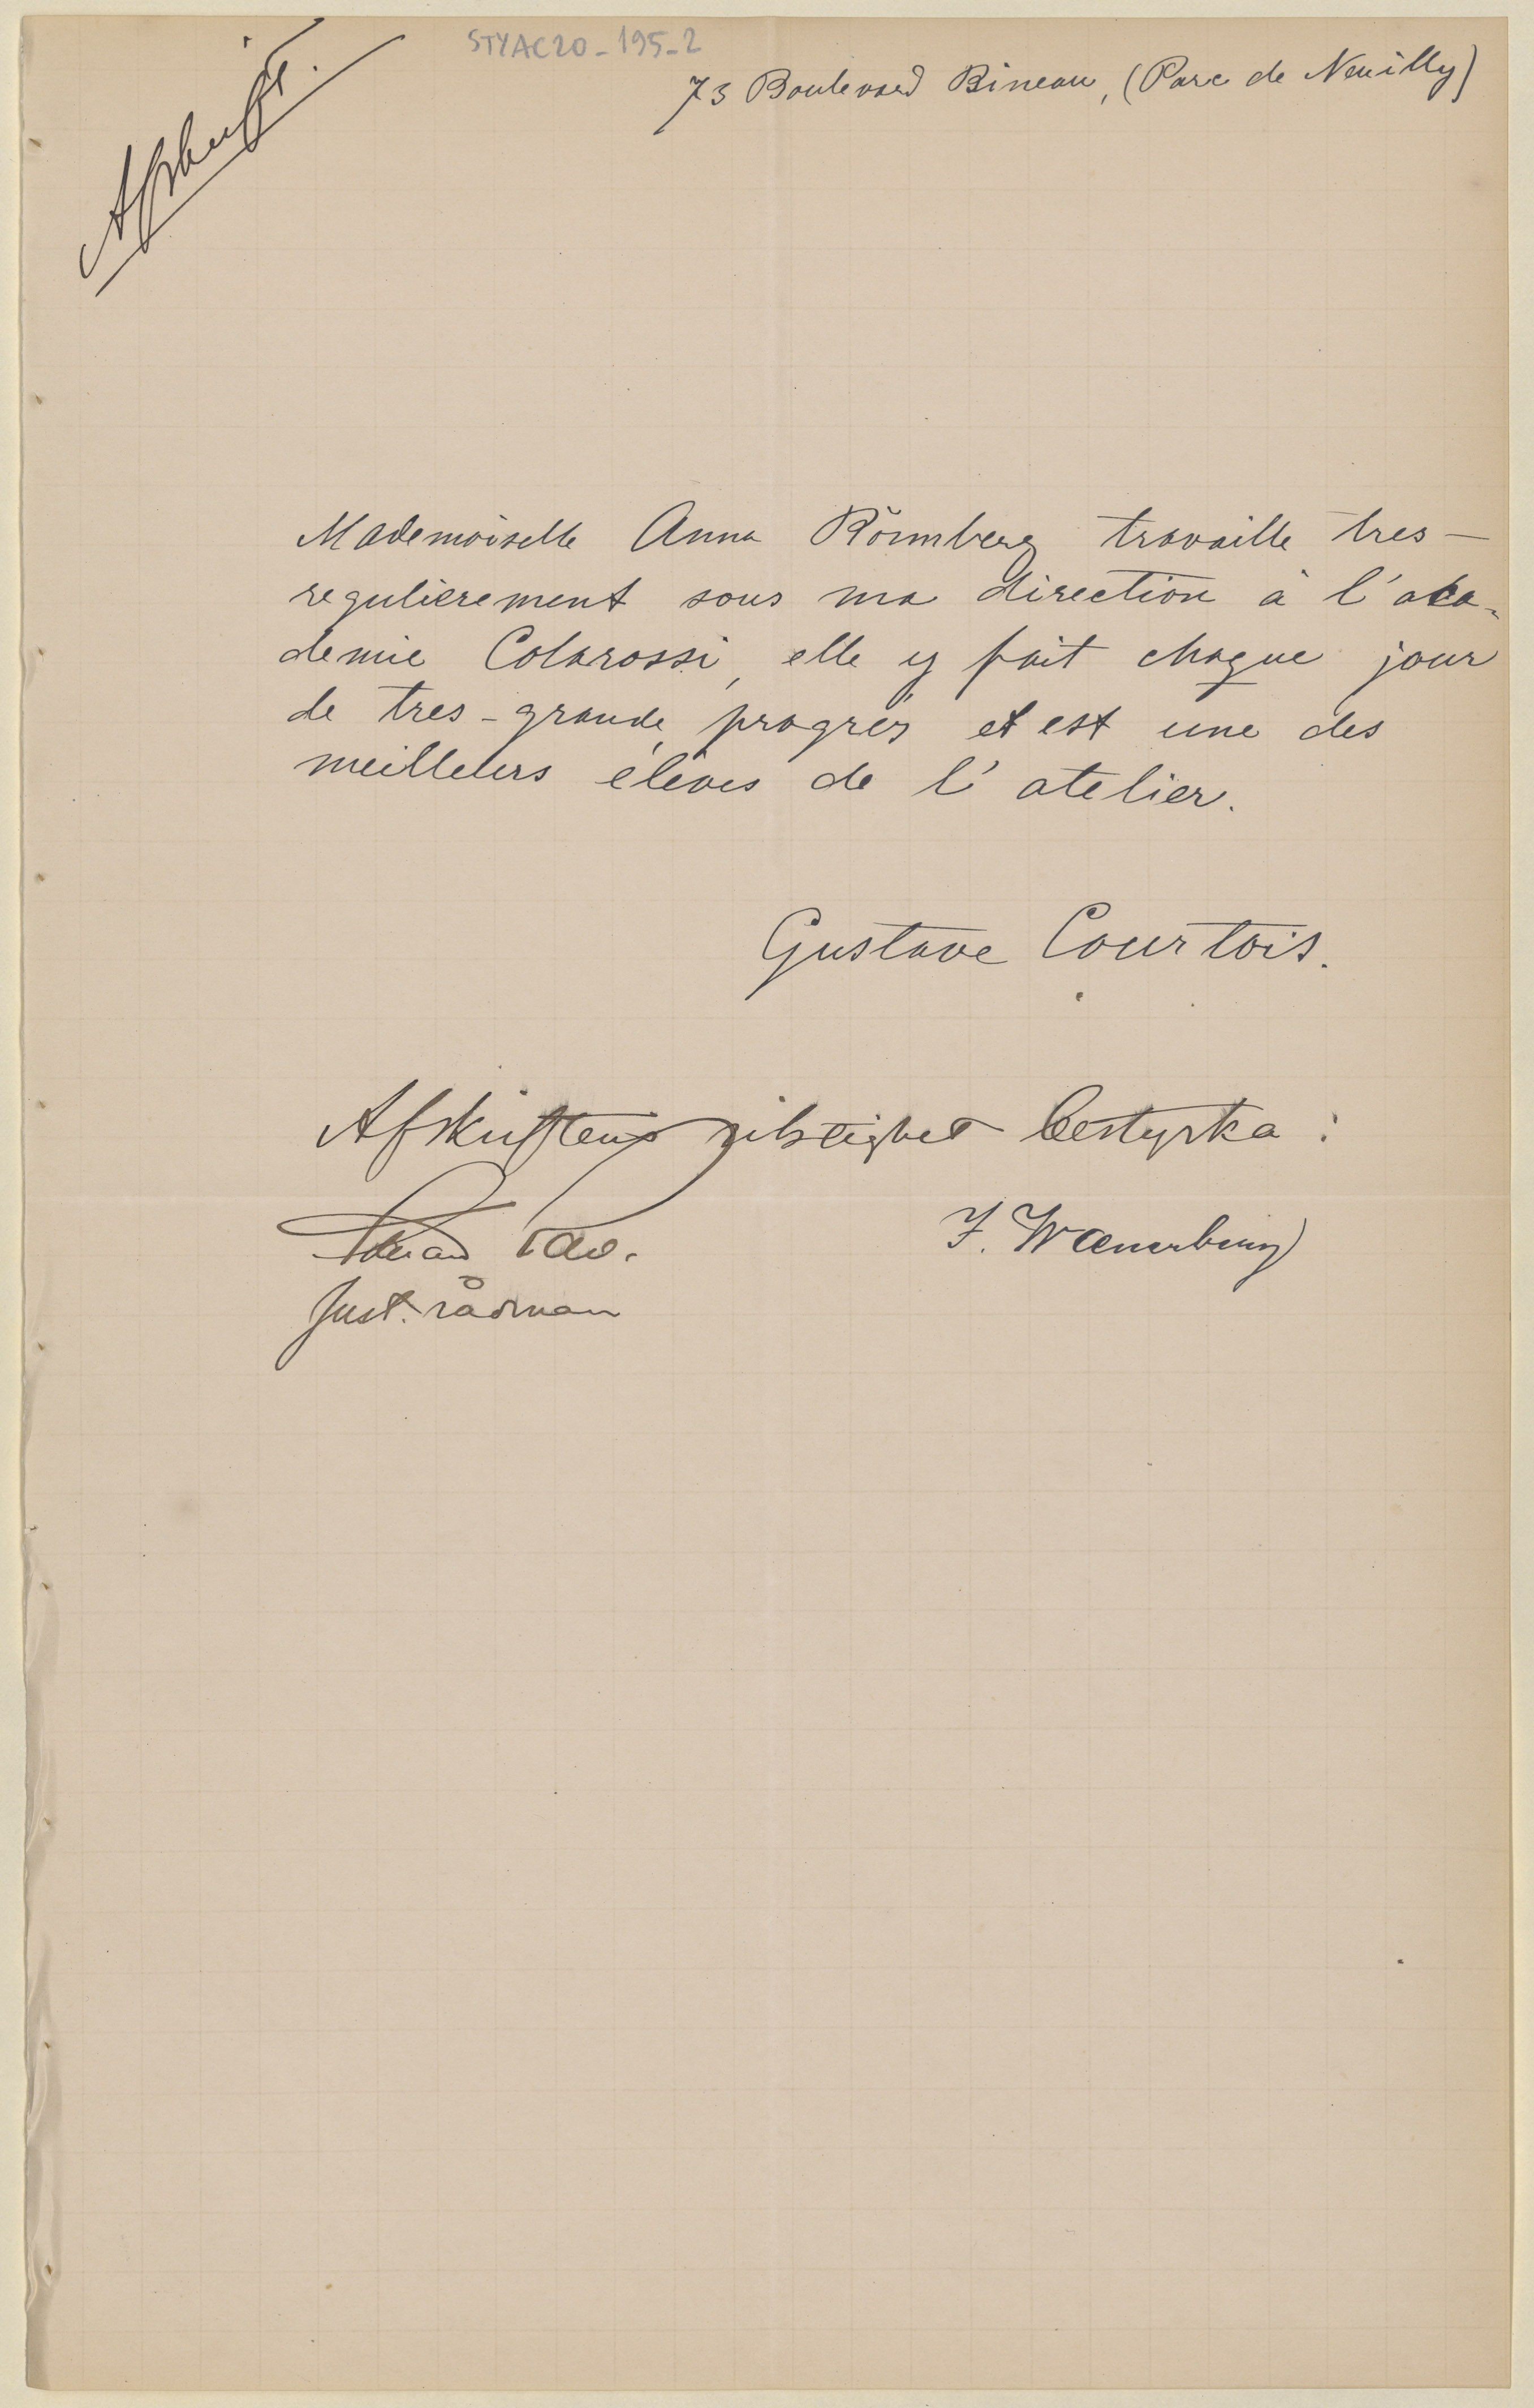 Afskrift.
STYAC20-195-2
73 Boulevard Bineau, (Parc de Neuilly)
Mademoiselle Anna Rönnberg travaille tres-
regulierement sous ma direction à l'aca-
demie Colarossi, elle y fait chaque jour
de tres-grande progrès et est une des
meilleurs élèves de l'atelier.
Gustave Courtois.
Afskriftens riktighet bestyrka:
F. Wænerberg
Just. rådman